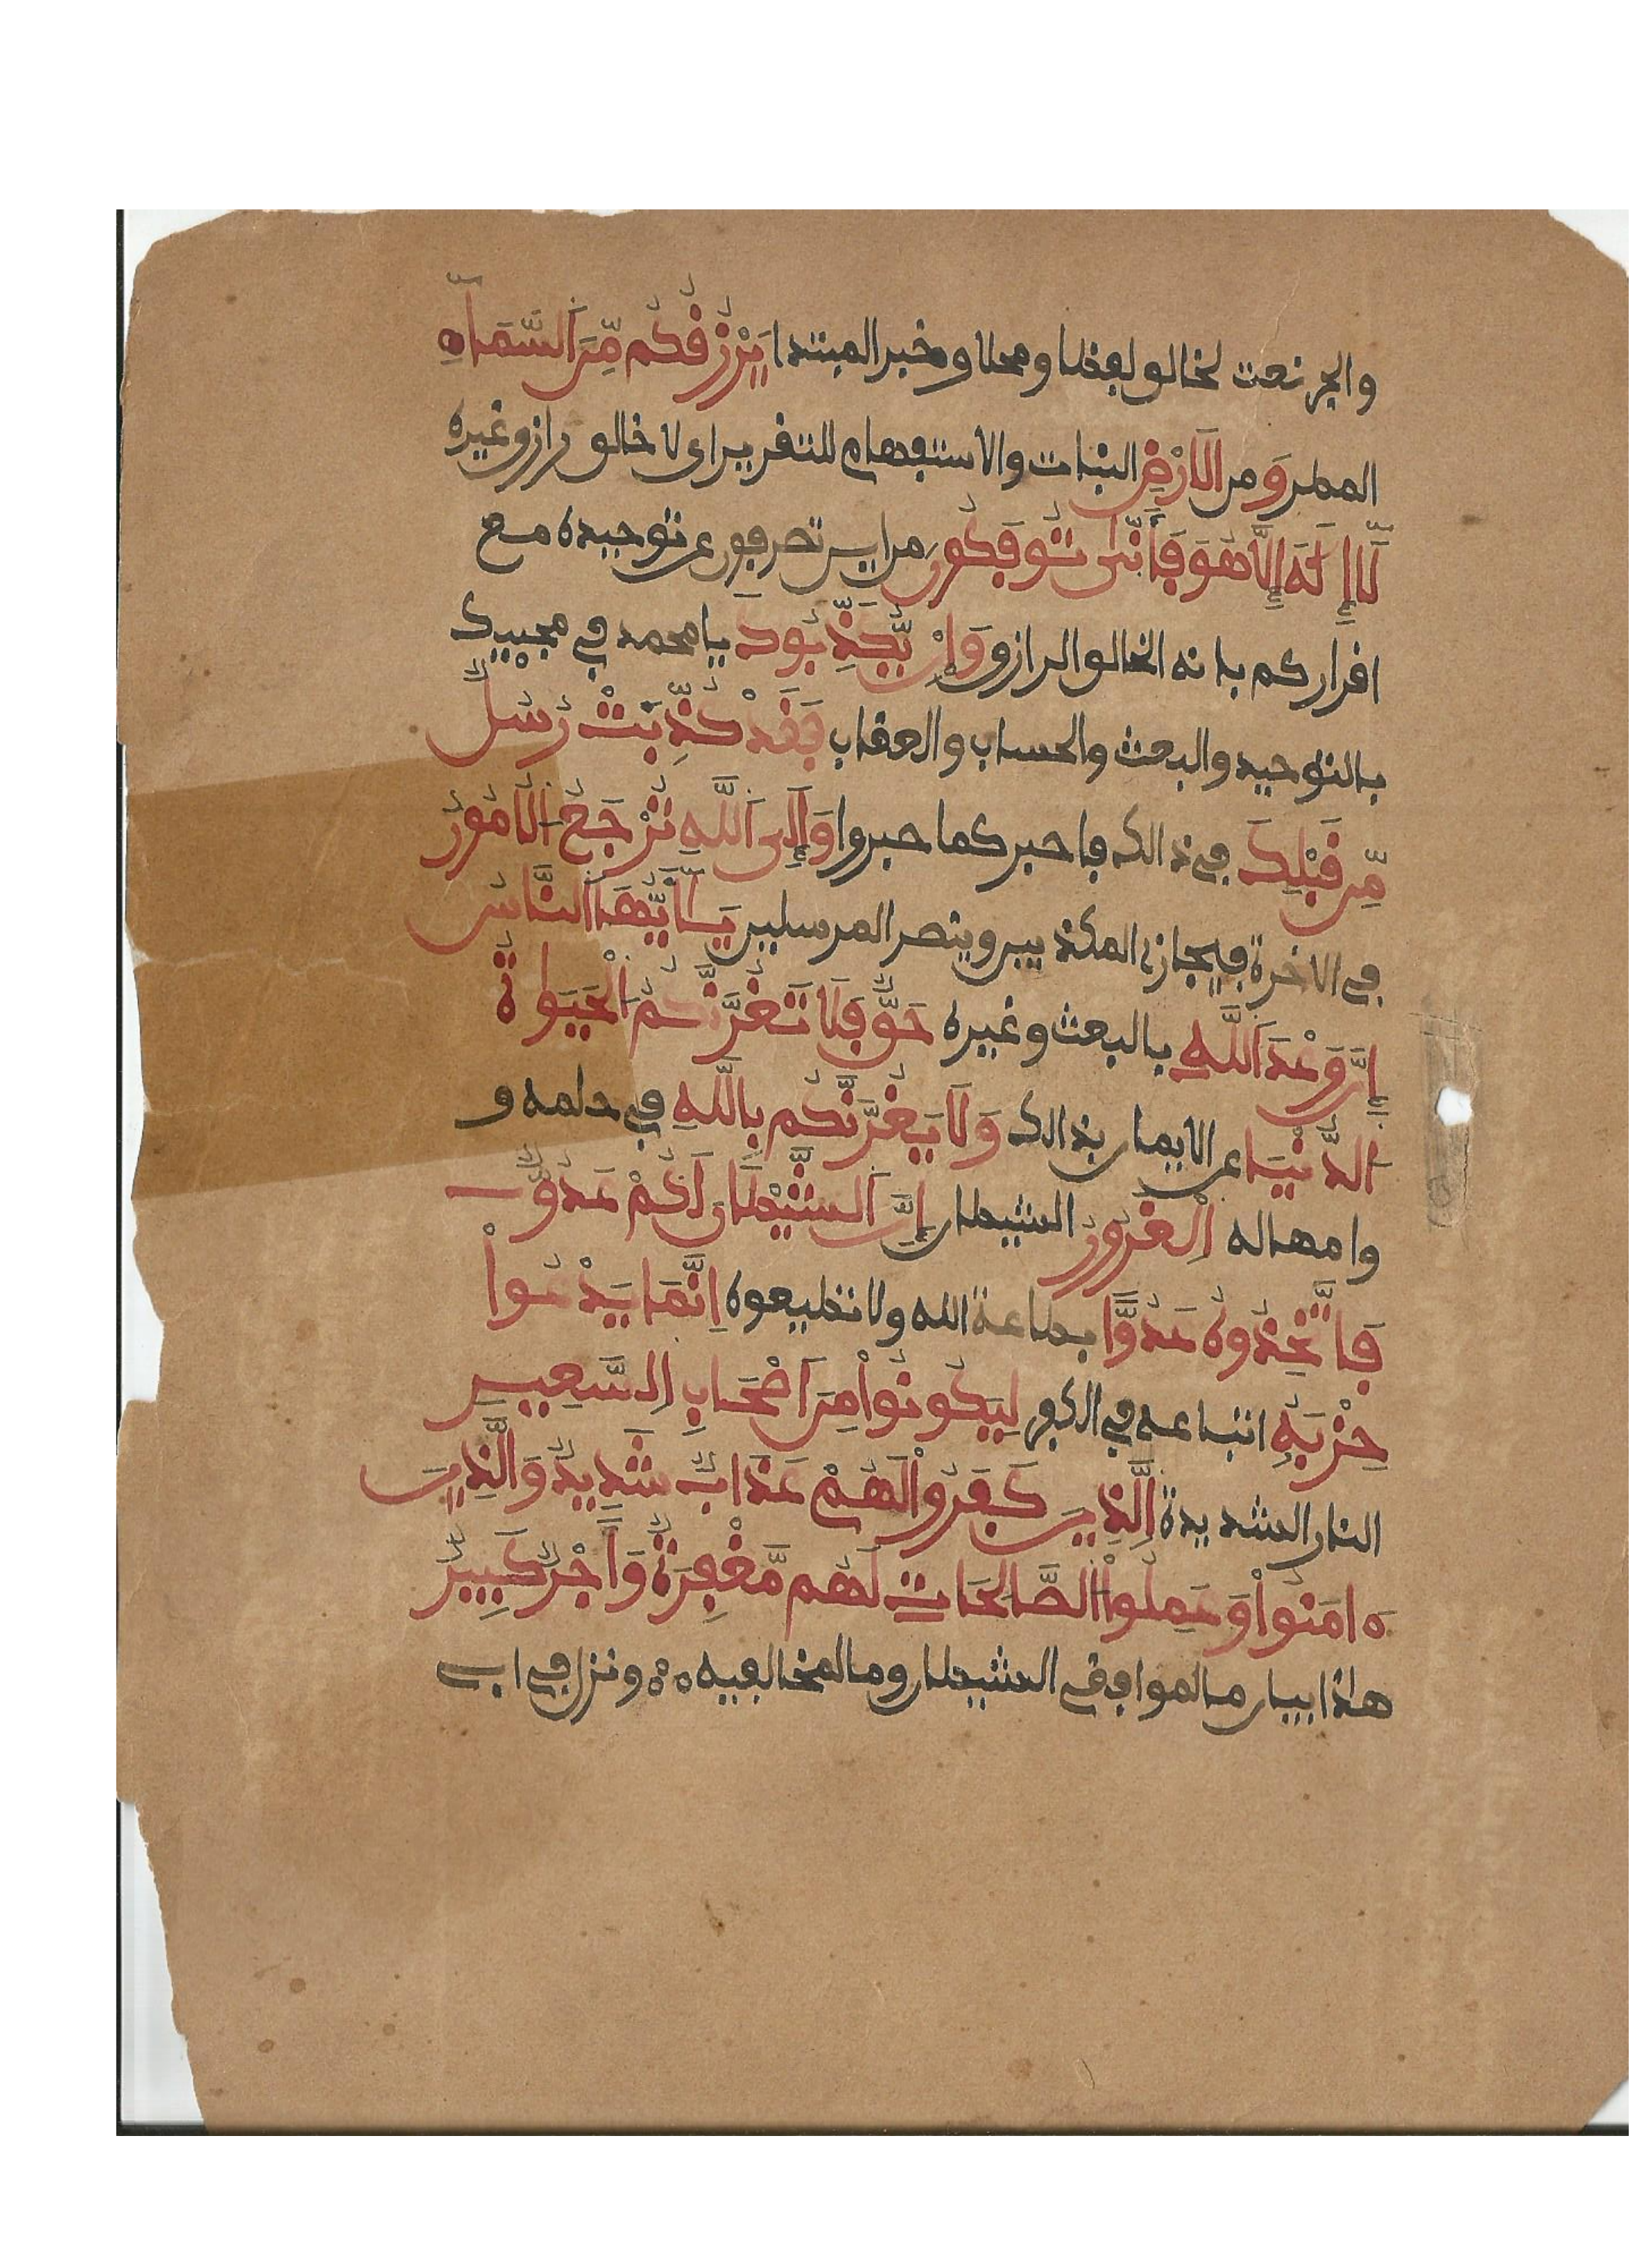 والجر نعت لخالو لفظا ومحلا وخبر المبتدا يَرْزُقُكُم مِّنَ اَلسَّمَاءِ
المطر وَمن اَلَارْضِ النبات والاستفهام للتقرير اى لا خالق رازق غيره
لَا إِلَٰهَ إِلَّا هُوَ فَأَنّىٰ تُوفَكُونَ من اين تصرفون عن توحيده مع
افراركم بانه الخالق الرازق وَإِنْ يُّكَذِّبُوكَ يا محمد في مجييك
بالتوحيد والبعث والحساب والعقاب فَقَدْ كُذِّبَتْ رُسُلٌ
مِّن قَبْلِكَ في ذالك فاصبر كما صبروا وَإِلَى اَللَّهِ تُرْجَعُ اُلُامُورُ
في الاخرة فيجازى المكذبين وينصر المرسلين يَـٰأَيُّهَا اَلنَّاسُ
إِنَّ وَعْدَ اَللَّهِ بالبعث وغيره حَقٌّ فَلَا تَغُرَّنَّكُمُ اُلْحَيَوٰةُ
اُلدُّنْيَا عن الايمان بذالك وَلَا يَغُرَّنَّكُم بِاللَّهِ في حلمه و
وامهاله اِلْغَرُورُ الشيطان إِنَّ اَلشَّيْطَانَ لَكُمْ عَدُوٌّ
فَاتَّخِذُوهُ عَدُوًّا بطاعة الله ولا تطيعوه اِنَّمَا يَدْعُواْ
حِزْبَهُ اتباعه في الكفر لِيَكُونُواْ مِنَ اَصْحَابِ اِلسَّعِيرِ
النار الشديدة اِلَّذِينَ كَفَرُواْ لَهُمْ عَذَابٌ شَدِيدٌ وَالَّذِينَ
ءَامَنُواْ وَعَمِلُواْ اُلصَّالِحَاتِ لَهُم مَّغْفِرَةٌ وَأَجْرٌ كَبِيرٌ
هاذا بيان مالموافقي الشيطان ومالمخالفيه ونزل في ابي